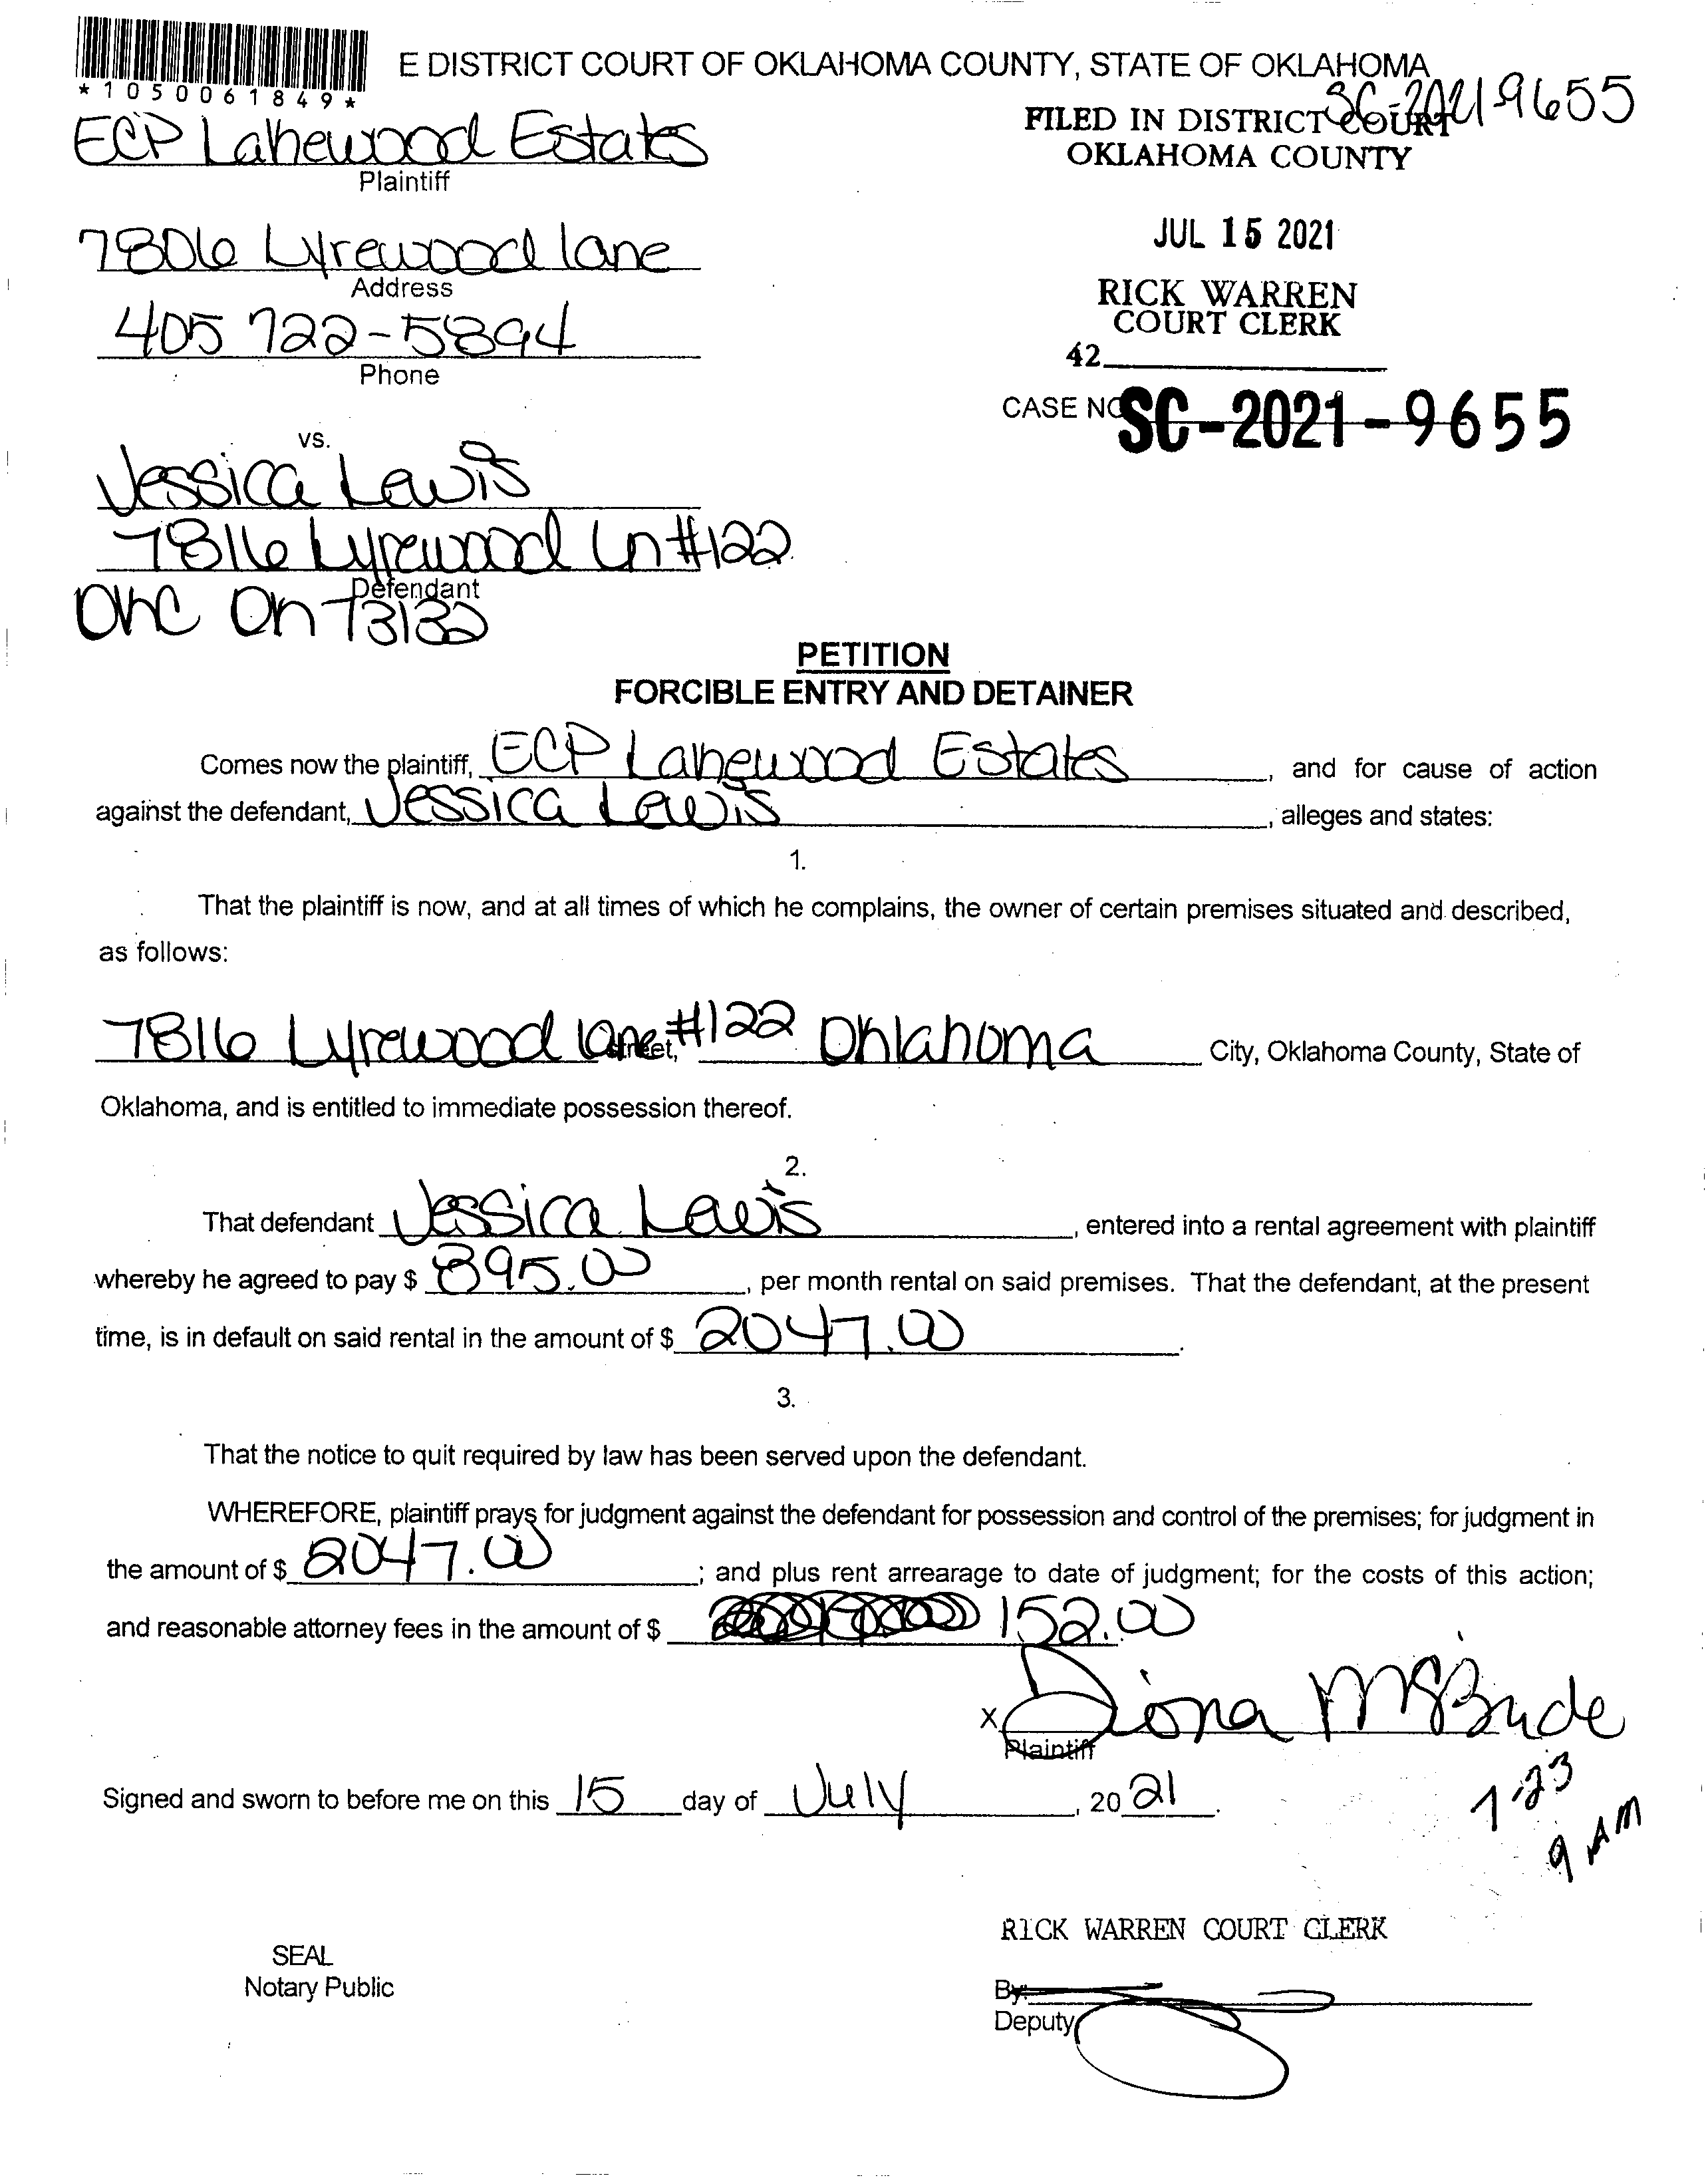 E DISTRICT COURT OF OKLAHOMA COUNTY, STATE OF OKLAHOMA
*1050061849*
SC-2021-9655
ECP Lakewood Estates
Plaintiff
FILED IN DISTRICT COURT
OKLAHOMA COUNTY
7806 Lyrewood lane
Address
JUL 15 2021
405 722-5894
Phone
RICK WARREN
COURT CLERK
42
CASE NO SC-2021-9655
vs.
Jessica Lewis
7816 Lyrewood Ln #122
Defendant
OKC OK 73132
PETITION
FORCIBLE ENTRY AND DETAINER
Comes now the plaintiff, ECP Lakewood Estates, and for cause of action
against the defendant, Jessica Lewis, alleges and states:
1.
That the plaintiff is now, and at all times of which he complains, the owner of certain premises situated and described,
as follows:
7816 Lyrewood lane street, #122 Oklahoma City, Oklahoma County, State of
Oklahoma, and is entitled to immediate possession thereof.
2.
That defendant Jessica Lewis, entered into a rental agreement with plaintiff
whereby he agreed to pay $ 895.00, per month rental on said premises. That the defendant, at the present
time, is in default on said rental in the amount of $ 2047.00.
3.
That the notice to quit required by law has been served upon the defendant.
WHEREFORE, plaintiff prays for judgment against the defendant for possession and control of the premises; for judgment in
the amount of $ 2047.00; and plus rent arrearage to date of judgment; for the costs of this action;
and reasonable attorney fees in the amount of $ 152.00
x Diona McBride
Plaintiff
Signed and sworn to before me on this 15 day of July, 20 21.
7-23
9 AM
RICK WARREN COURT CLERK
SEAL
Notary Public
By:
Deputy